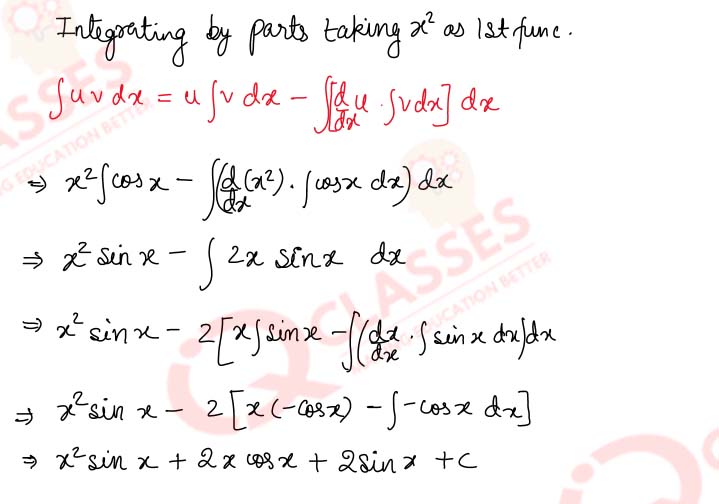 Integrating by parts taking x² as 1st func.
∫uv dx = u∫v dx − ∫[d/dx u · ∫v dx] dx
⇒ x²∫cos x − ∫(d/dx (x²) · ∫cosx dx) dx
⇒ x² sin x − ∫ 2x sinx dx
⇒ x² sinx − 2[x∫sinx − ∫(dx/dx · ∫sin x dx)dx
⇒ x² sin x − 2[x(−cosx) − ∫−cosx dx]
⇒ x² sin x + 2x cosx + 2sin x + c
ASSES
NG EDUCATION BETTER
IQ CLASSES
EDUCATION BETTER